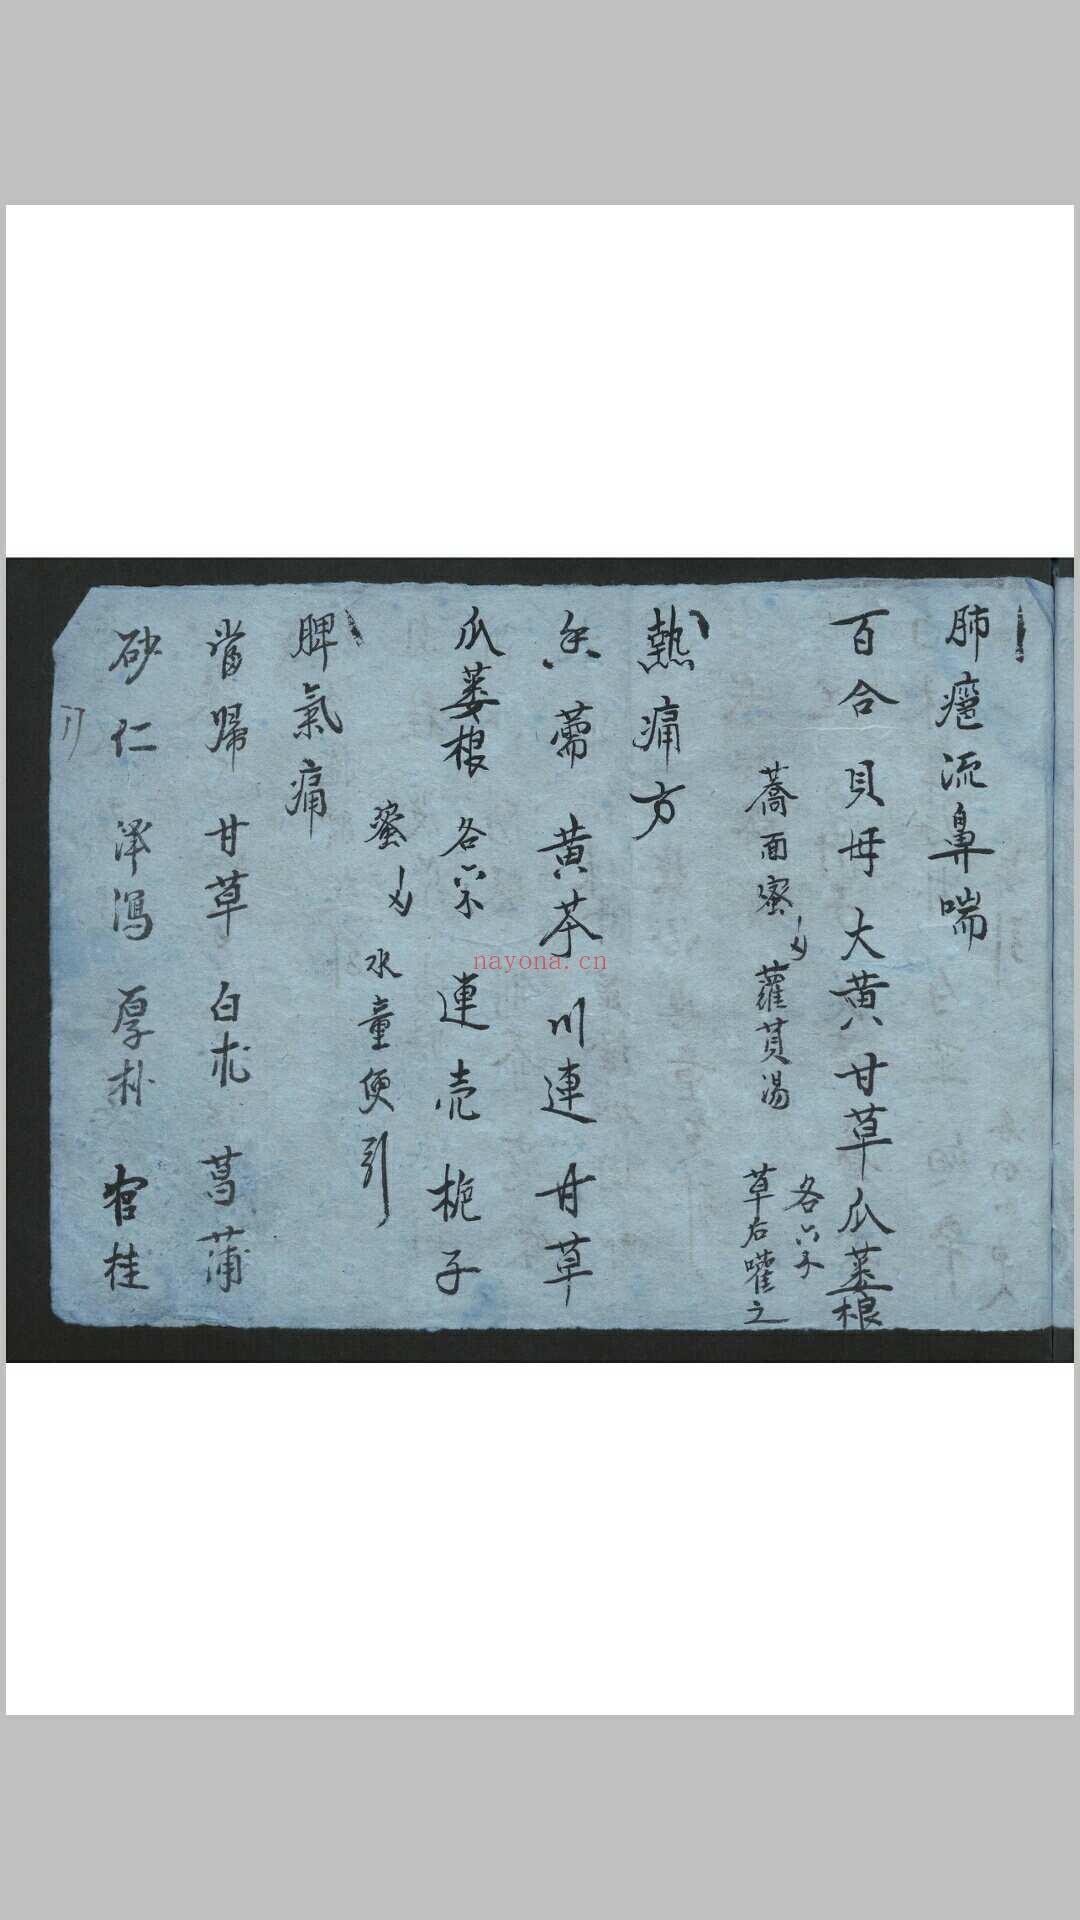 肺瘡流鼻喘
百合 貝母 大黄 甘草 瓜蒌根
各六
蕎面蜜 蘿荳湯 草右嚾之
熱痛方
香薷 黄芩 川連 甘草
瓜蒌根 各 連壳 栀子
蜜 水童便引
脾氣痛
當歸 甘草 白朮 菖蒲
砂仁 泽瀉 厚朴 官桂
nayona.cn